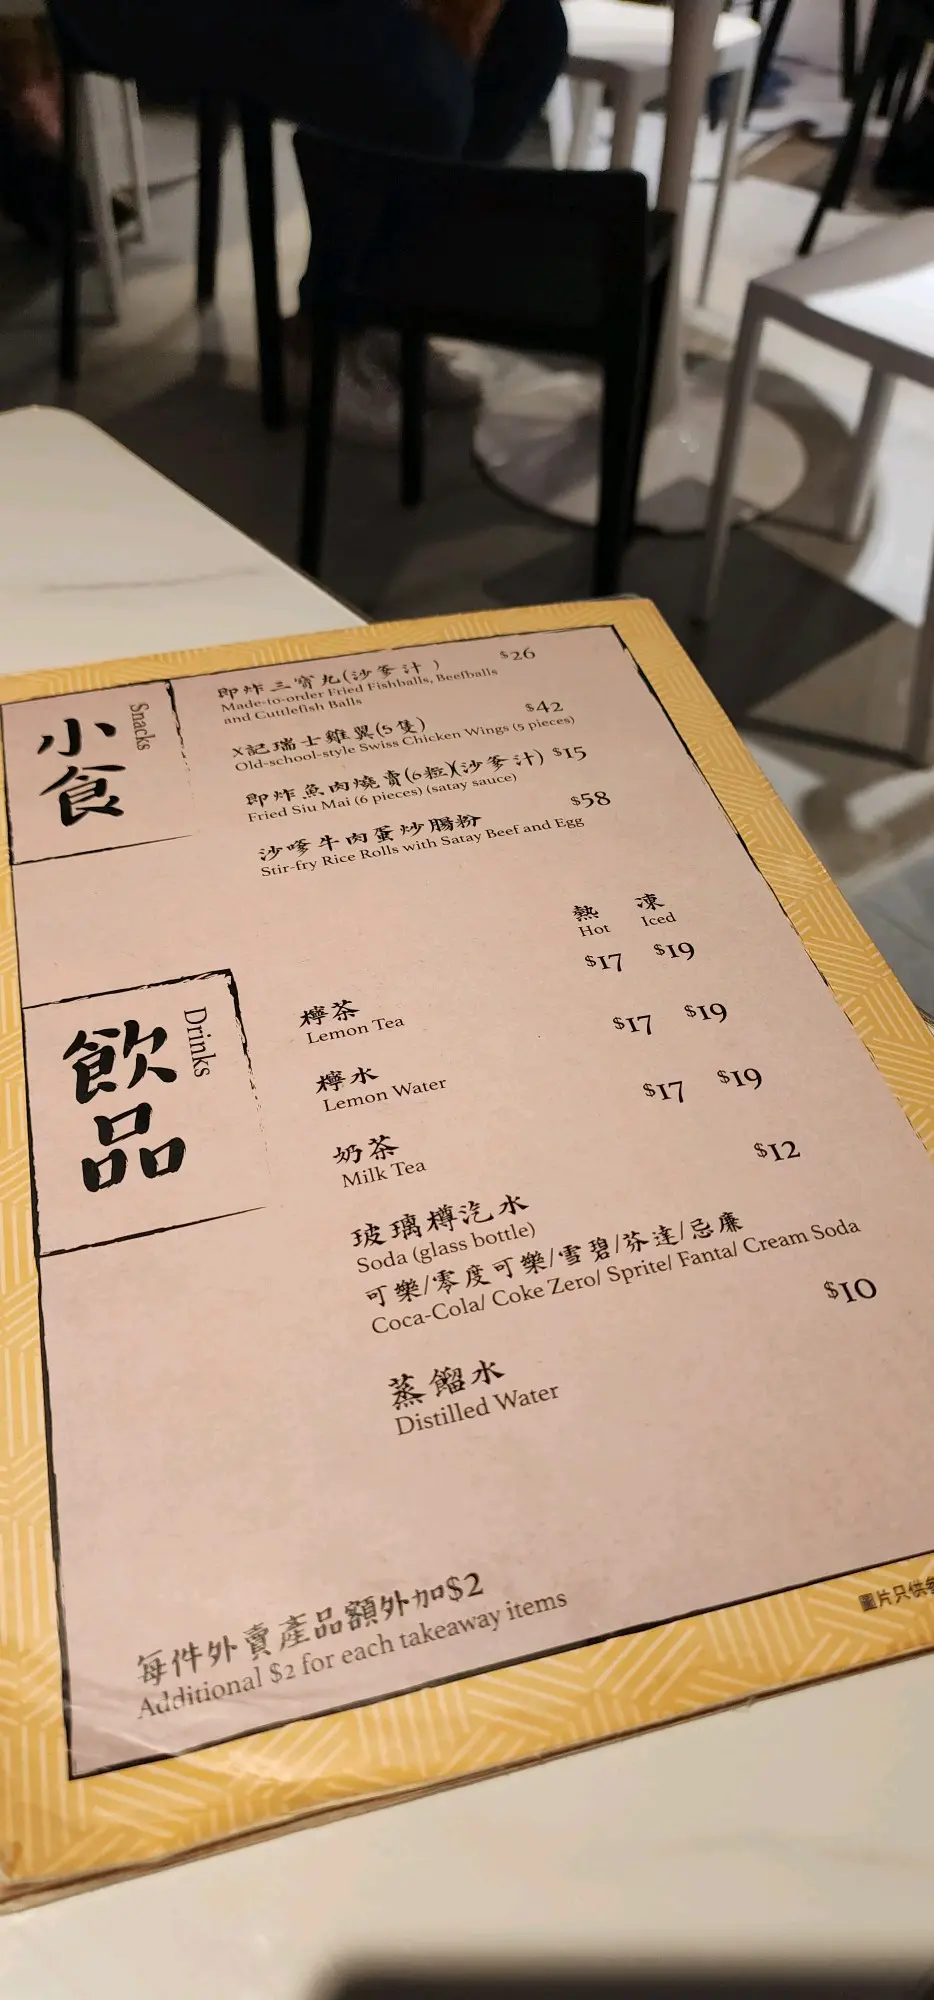 小食
Snacks
即炸三寶丸(沙爹汁) $26
Made-to-order Fried Fishballs, Beefballs
and Cuttlefish Balls
X記瑞士雞翼(5隻) $42
Old-school-style Swiss Chicken Wings (5 pieces)
即炸魚肉燒賣(6粒)(沙爹汁) $15
Fried Siu Mai (6 pieces) (satay sauce)
沙嗲牛肉蛋炒腸粉 $58
Stir-fry Rice Rolls with Satay Beef and Egg
飲品
Drinks
熱 凍
Hot Iced
檸茶 $17 $19
Lemon Tea
檸水 $17 $19
Lemon Water
奶茶 $17 $19
Milk Tea
玻璃樽汽水 $12
Soda (glass bottle)
可樂/零度可樂/雪碧/芬達/忌廉
Coca-Cola/ Coke Zero/ Sprite/ Fanta/ Cream Soda
蒸餾水 $10
Distilled Water
每件外賣產品額外加$2
Additional $2 for each takeaway items
圖片只供參